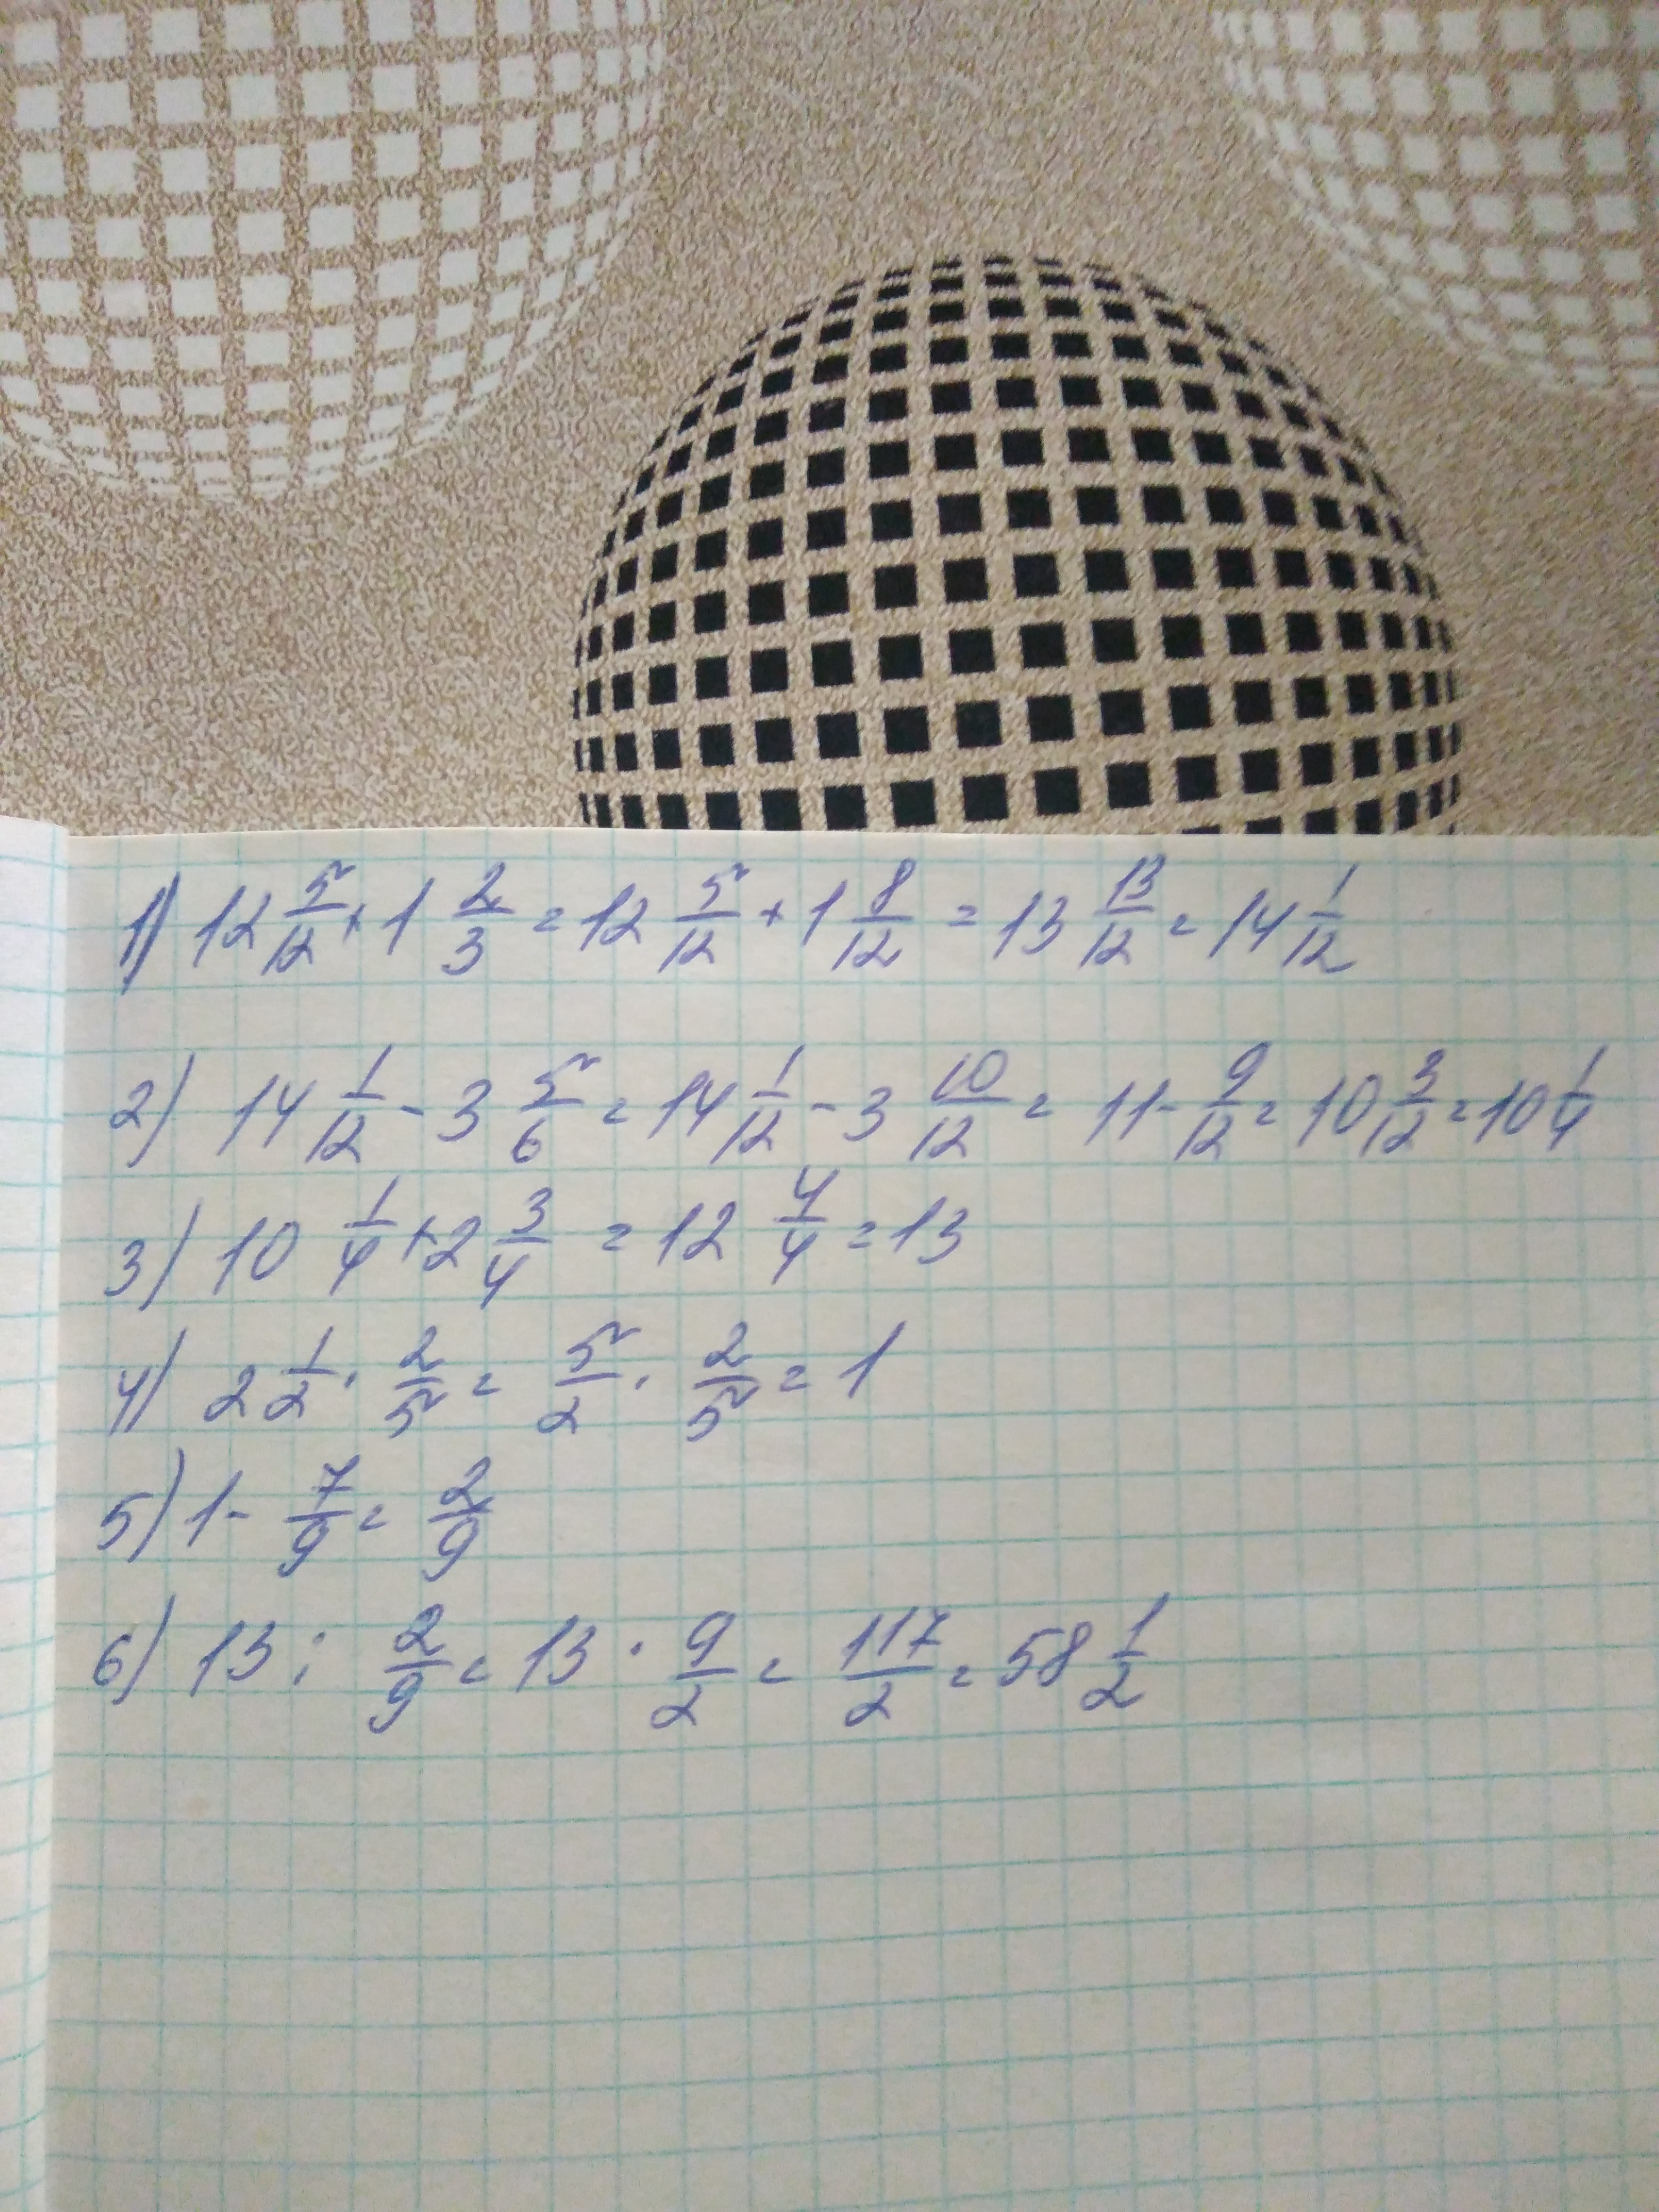 1) 12 5/12 + 1 2/3 = 12 5/12 + 1 8/12 = 13 13/12 = 14 1/12
2) 14 1/12 - 3 5/6 = 14 1/12 - 3 10/12 = 11 - 9/12 = 10 3/12 = 10 1/4
3) 10 1/4 + 2 3/4 = 12 4/4 = 13
4) 2 1/2 · 2/5 = 5/2 · 2/5 = 1
5) 1 - 7/9 = 2/9
6) 13 : 2/9 = 13 · 9/2 = 117/2 = 58 1/2